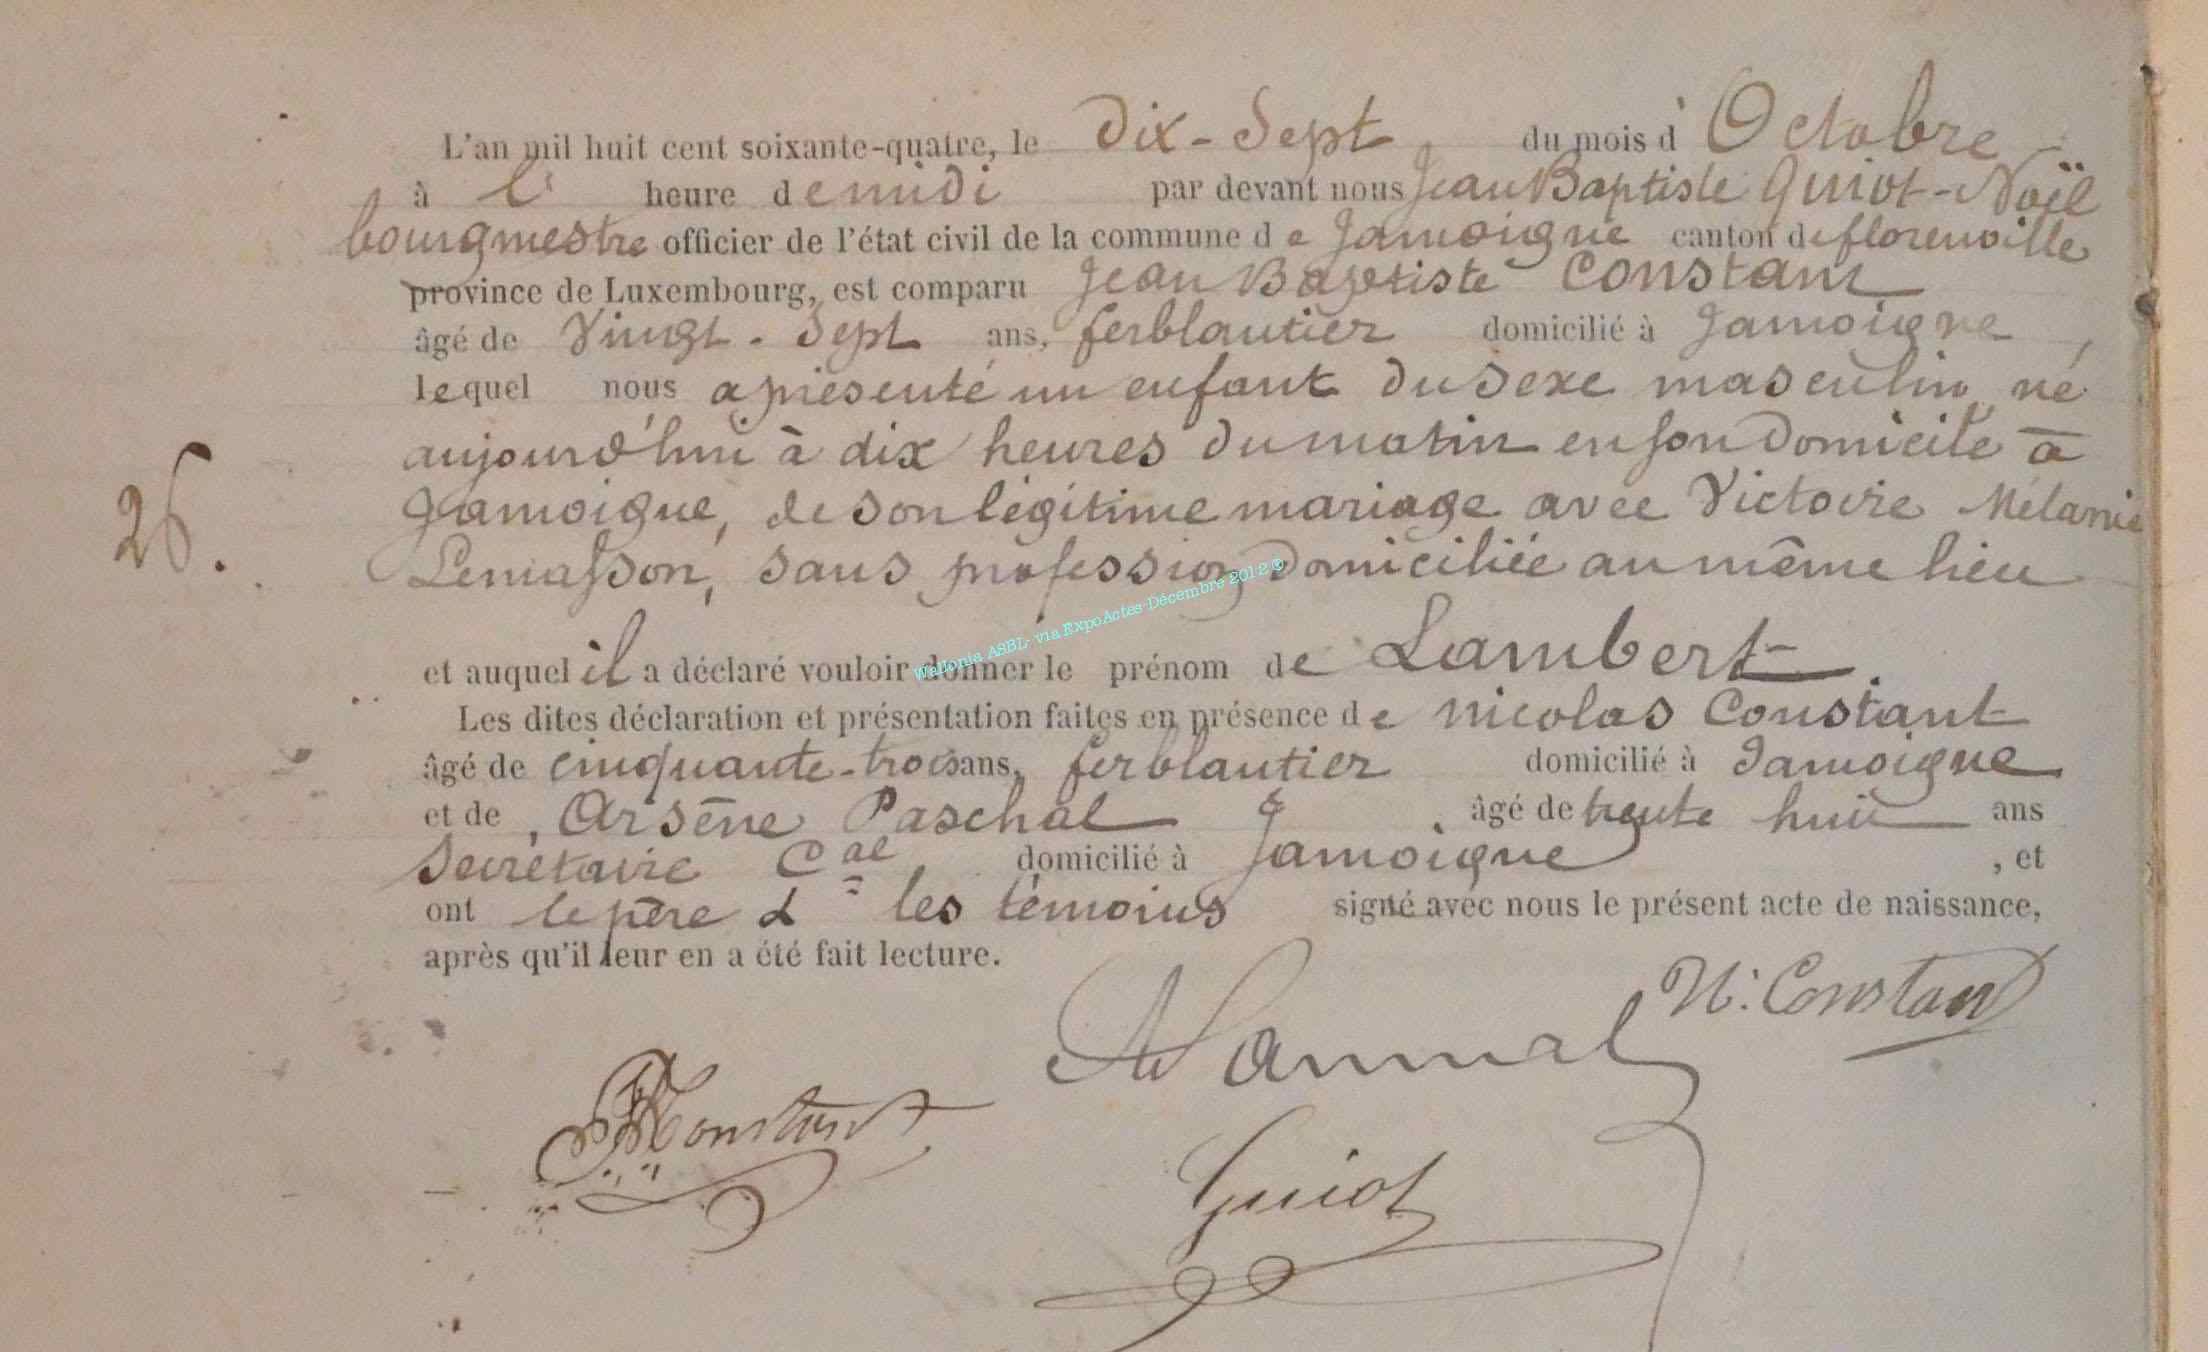 L'an mil huit cent soixante-quatre, le Dix-Sept du mois d'Octobre
à l' heure de midi par devant nous Jean Baptiste Guiot-Noël
bourgmestre officier de l'état civil de la commune de Jamoigne canton de florenville
province de Luxembourg, est comparu Jean Baptiste Constant
âgé de Vingt-Sept ans, ferblantier domicilié à Jamoigne,
lequel nous a présenté un enfant du sexe masculin né
aujourd'hui à dix heures du matin en son domicile à
Jamoigne, de son légitime mariage avec Victoire Mélanie
sans profession domiciliée au même lieu
et auquel il a déclaré vouloir donner le prénom de Lambert
Les dites déclaration et présentation faites en présence de Nicolas Constant
âgé de cinquante-trois ans, ferblantier domicilié à Jamoigne
et de Arsène Paschal âgé de trente huit ans
Secrétaire Cal domicilié à Jamoigne, et
ont le père & les témoins signé avec nous le présent acte de naissance,
après qu'il leur en a été fait lecture.
26.
N. Constant
Constant
Guiot
Wallonia ASBL- via ExpoActes-Décembre 2012 ©